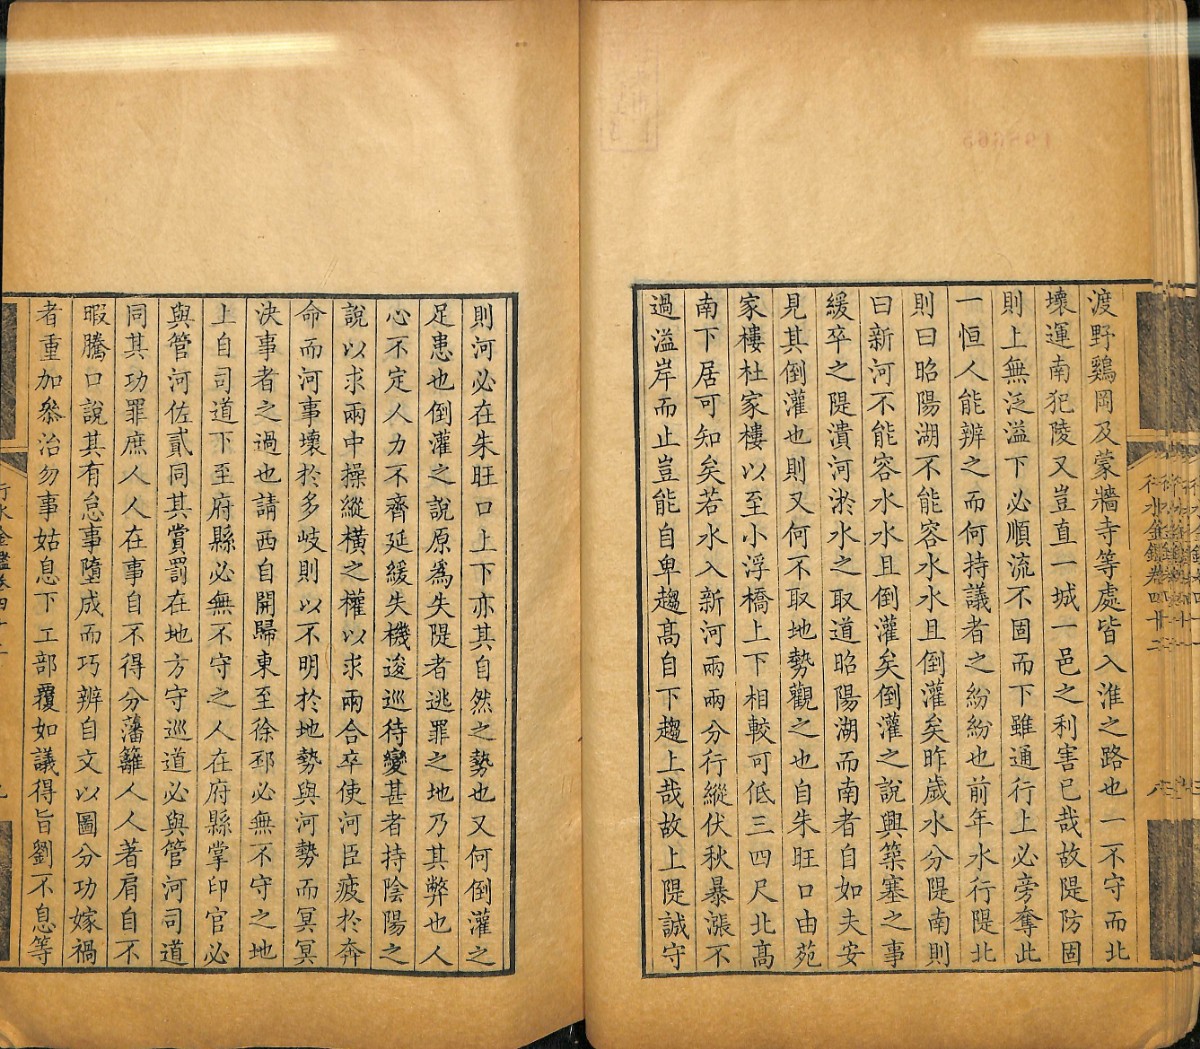 渡野鷄岡及蒙牆寺等處皆入淮之路也一不守而北
壞運南犯陵又豈直一城一邑之利害已哉故隄防固
則上無泛溢下必順流不固而下雖通行上必旁奪此
一恒人能辨之而何持議者之紛紛也前年水行隄北
則曰昭陽湖不能容水水且倒灌矣昨歲水分隄南則
曰新河不能容水水且倒灌矣倒灌之說興築塞之事
緩卒之隄潰河淤水之取道昭陽湖而南者自如夫安
見其倒灌也則又何不取地勢觀之也自朱旺口由苑
家樓杜家樓以至小浮橋上下相較可低三四尺北高
南下居可知矣若水入新河兩兩分行縱伏秋暴漲不
過溢岸而止豈能自卑趨高自下趨上哉故上隄誠守
則河必在朱旺口上下亦其自然之勢也又何倒灌之
足患也倒灌之說原為失隄者逃罪之地乃其弊也人
心不定人力不齊延緩失機逡巡待變甚者持陰陽之
說以求兩中操縱橫之權以求兩合卒使河臣疲於奔
命而河事壞於多岐則以不明於地勢與河勢而冥冥
決事者之過也請西自開歸東至徐邳必無不守之地
上自司道下至府縣必無不守之人在府縣掌印官必
與管河佐貳同其賞罰在地方守巡道必與管河司道
同其功罪庶人人在事自不得分藩籬人人著肩自不
暇騰口說其有怠事隳成而巧辨自文以圖分功嫁禍
者重加叅治勿事姑息下工部覆如議得旨劉不息等
行水金鑑卷四十二